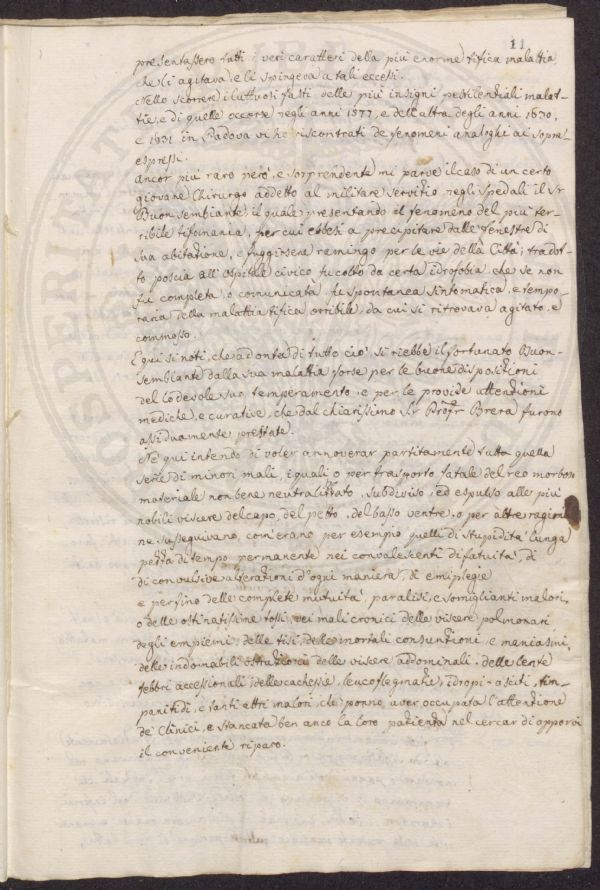 11
presentassero tutti i veri caratteri della più enorme tifica malattia
che li agitava, e li spingeva a tali eccessi.
Nello scorrere i luttuosi fasti delle più insigni pestilenziali malat-
tie, e di quelle occorse negli anni 1577, e dell'altra degli anni 1630,
e 1631 in Padova vi ho riscontrati de' fenomeni analoghi ai sopra-
espressi.
Ancor più raro però, e sorprendente mi parve il caso di un certo
giovane Chirurgo addetto al militare servitio negli Spedali il Sr
Buonsembiante, il quale presentando il fenomeno del più ter-
ribile tifomania, per cui ebbesi a precipitare dalle fenestre di
sua abitazione, e fuggirsene ramingo per le vie della Città; tradot-
to poscia all'ospitale civico fu colto da certa idrofobia, che se non
fu completa, o comunicata, fu spontanea sintomatica, e tempo-
raria della malattia tifica orribile, da cui si ritrovava agitato, e
commosso.
E qui si noti, che ad onta di tutto ciò si riebbe il fortunato Buon-
sembiante dalla sua malattia forse per le buone disposizioni
del lodevole suo temperamento, e per le provide attenzioni
mediche, e curative, che dal chiarissimo Sr Profr Brera furono
assiduamente prestate.
Nè qui intendo di voler annoverar partitamente tutta quella
serie di minori mali, i quali o per trasporto fatale del reo morboso
materiale non bene neutralizzato, suddiviso, ed espulso alle più
nobili viscere del capo, del petto, del basso ventre, o per altre ragioni
ne susseguivano, com'erano per esempio quelli di stupidità lunga
pezza di tempo permanente nei convalescenti di fatuità, di
di convulsive alterazioni d'ogni maniera, di emiplegie
e perfino delle complete mutuità, paralisi, e somiglianti malori,
o delle ostinatissime tossi, nei mali cronici delle viscere polmonari
degli empiemi, delle tisi, delle mortali consunzioni, e maniasmi,
delle indomabili ostruzioni delle viscere addominali, delle lente
febbri accessionali, delle cachessie, leucoflegmatie, idropi-asciti, tim-
panitidi, e tanti altri malori, che ponno aver occupata l'attenzione
de' Clinici, e stancata ben anco la loro pazienza nel cercar di apporvi
il conveniente riparo.